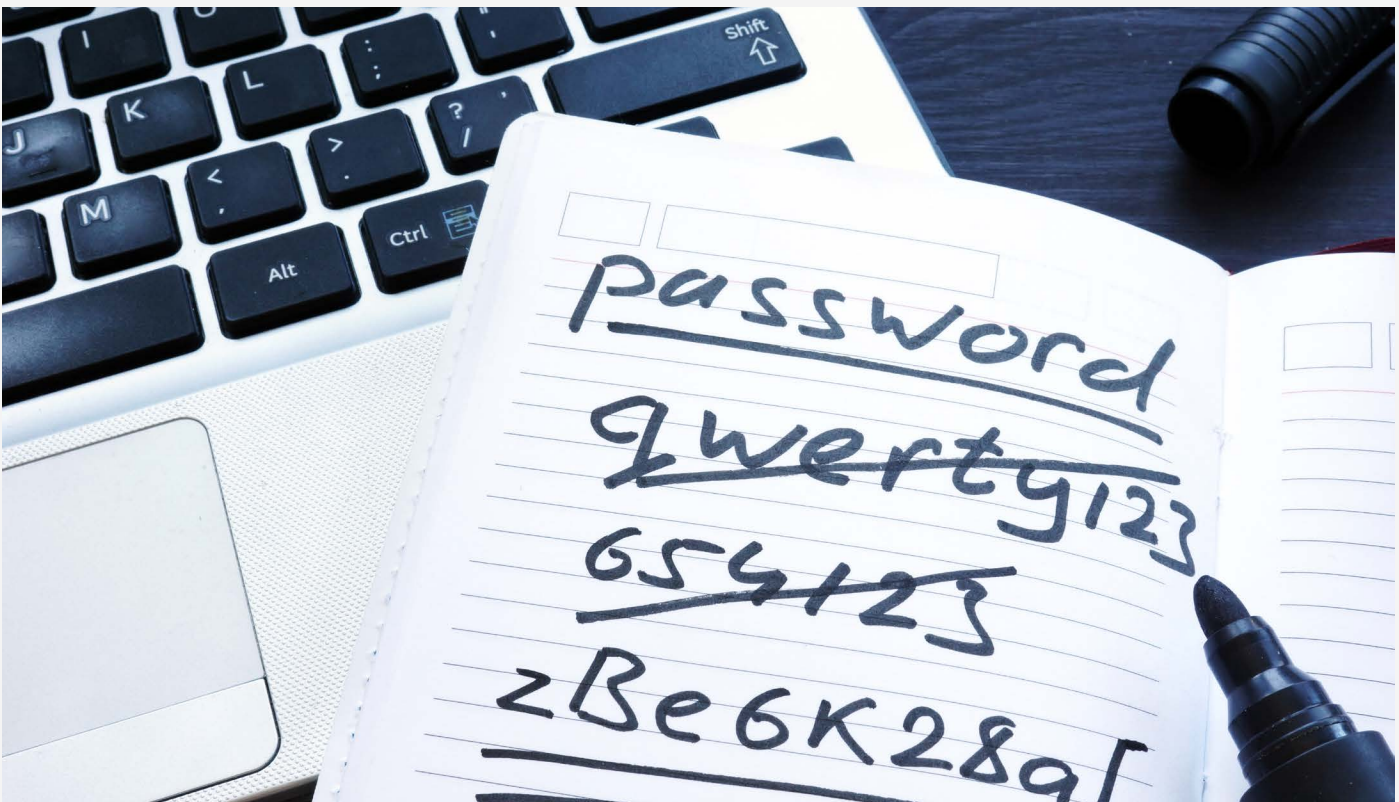 I O P : ; " ' Shift
J K L > . ? /
M < ,
Alt Ctrl
password
qwerty123
654123
zBe6K28a